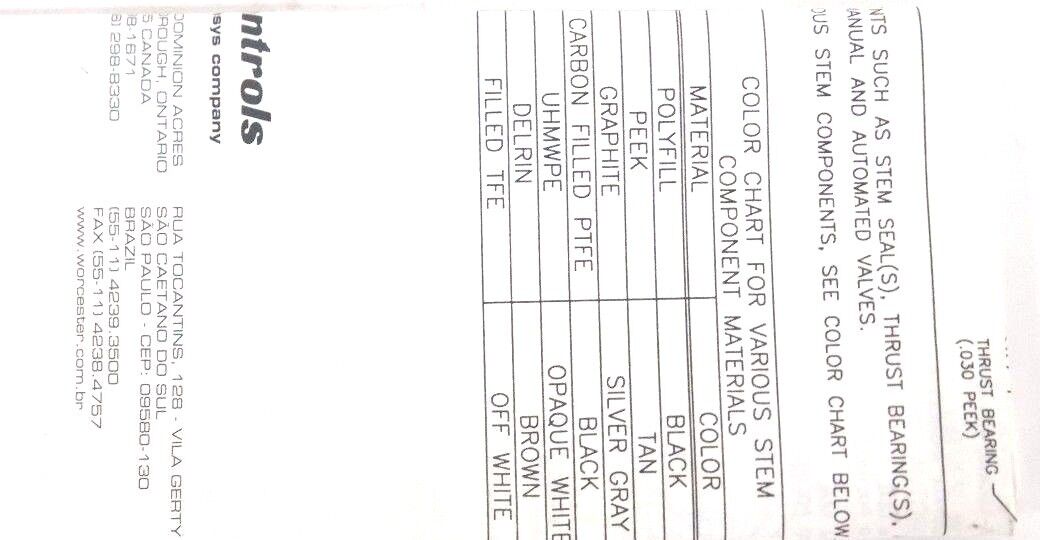 THRUST BEARING
(.030 PEEK)
NTS SUCH AS STEM SEAL(S), THRUST BEARING(S),
ANUAL AND AUTOMATED VALVES.
OUS STEM COMPONENTS, SEE COLOR CHART BELOW
COLOR CHART FOR VARIOUS STEM
COMPONENT MATERIALS
MATERIAL COLOR
POLYFILL BLACK
PEEK TAN
GRAPHITE SILVER GRAY
CARBON FILLED PTFE BLACK
UHMWPE OPAQUE WHITE
DELRIN BROWN
FILLED TFE OFF WHITE
ntrols
sys company
DOMINION ACRES
ROUGH, ONTARIO
5 CANADA
8-1671
) 298-8330
RUA TOCANTINS, 128 - VILA GERTY
SÃO CAETANO DO SUL
SÃO PAULO - CEP: 09580-130
BRAZIL
(55-11) 4239.3500
FAX (55-11) 4238.4757
www.worcester.com.br